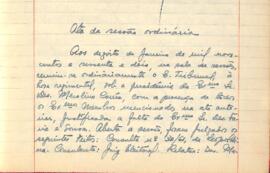 Ata da sessão ordinária
Aos dezoito de Janeiro de mil nove-
centos e sessenta e dois, na sala de sessões
reuniu-se ordinàriamente o E. Tribunal, à
hora regimental, sob a presidência do Exmo Sr.
Des. Marolino Corrêa, com a presença de todos
os Exmos Membros mencionados na ata ante-
rior, justificada a falta do Exmo Sr. des.
e Souza. Aberta a sessão, foram julgados os
seguintes feitos: Consulta nº de
Consulente: Juiz Eleitoral. Relator: Des.